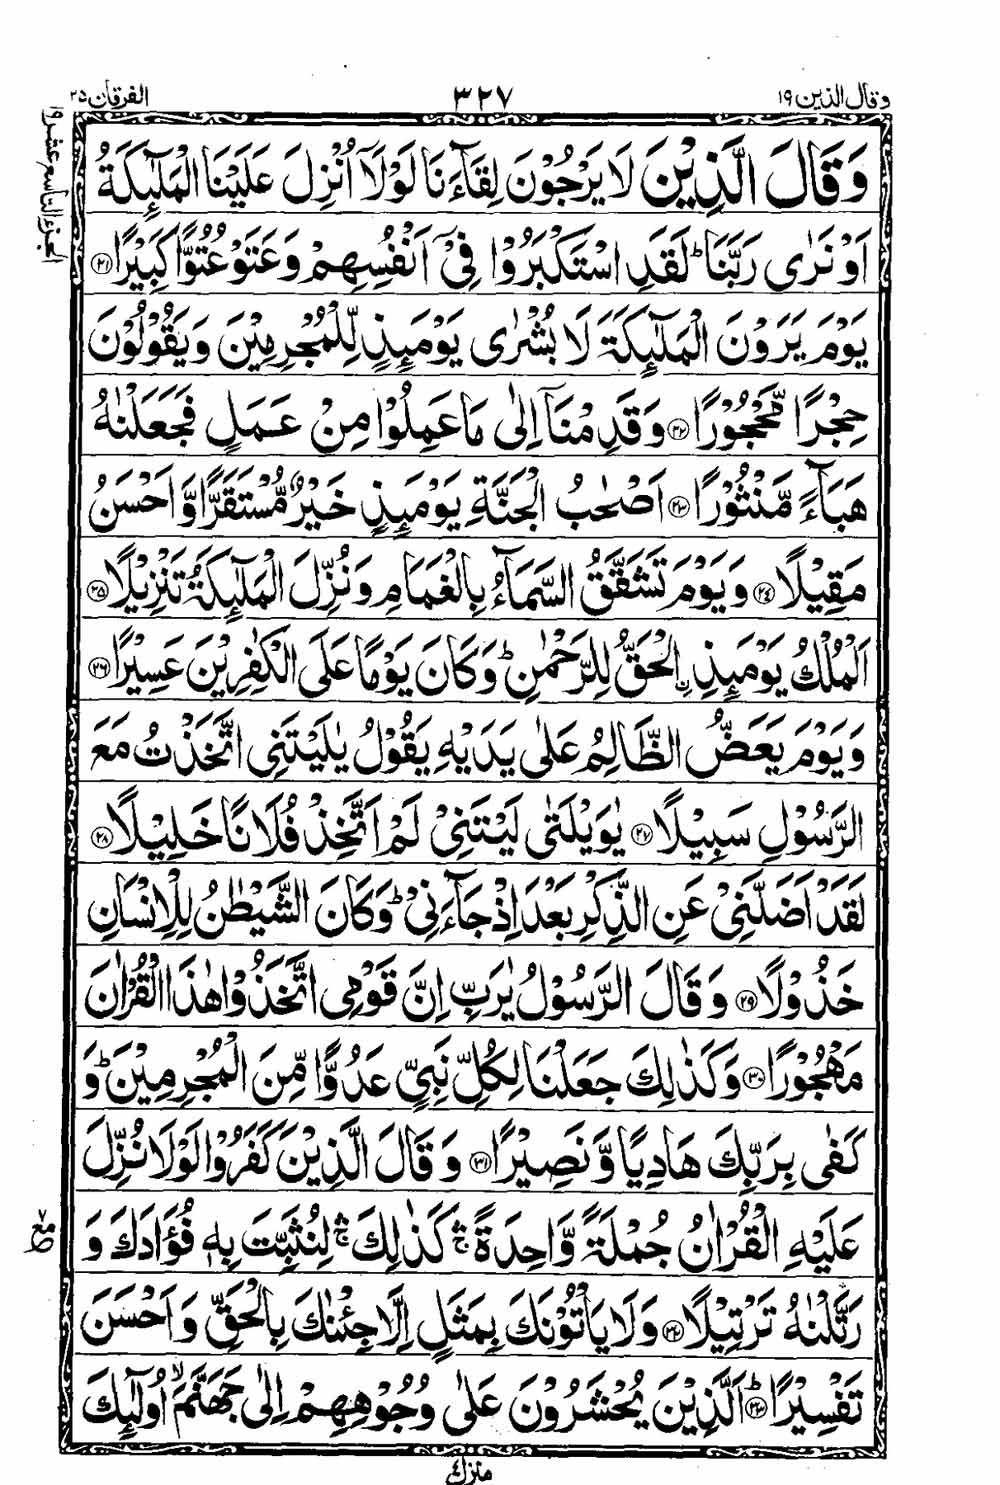 وقال الذين ١٩
٣٢٧
الفرقان ٢٥
الجزء التاسع عشر ١٩
وَقَالَ الَّذِيْنَ لَا يَرْجُوْنَ لِقَآءَنَا لَوْلَآ اُنْزِلَ عَلَيْنَا الْمَلٰٓئِكَةُ
اَوْ نَرٰى رَبَّنَا ؕ لَقَدِ اسْتَكْبَرُوْا فِيْٓ اَنْفُسِهِمْ وَعَتَوْ عُتُوًّا كَبِيْرًا ﴿۲۱﴾
يَوْمَ يَرَوْنَ الْمَلٰٓئِكَةَ لَا بُشْرٰى يَوْمَئِذٍ لِّلْمُجْرِمِيْنَ وَيَقُوْلُوْنَ
حِجْرًا مَّحْجُوْرًا ﴿۲۲﴾ وَقَدِمْنَآ اِلٰى مَا عَمِلُوْا مِنْ عَمَلٍ فَجَعَلْنٰهُ
هَبَآءً مَّنْثُوْرًا ﴿۲۳﴾ اَصْحٰبُ الْجَنَّةِ يَوْمَئِذٍ خَيْرٌ مُّسْتَقَرًّا وَّاَحْسَنُ
مَقِيْلًا ﴿۲۴﴾ وَيَوْمَ تَشَقَّقُ السَّمَآءُ بِالْغَمَامِ وَنُزِّلَ الْمَلٰٓئِكَةُ تَنْزِيْلًا ﴿۲۵﴾
اَلْمُلْكُ يَوْمَئِذِ ۨالْحَقُّ لِلرَّحْمٰنِ ؕ وَكَانَ يَوْمًا عَلَى الْكٰفِرِيْنَ عَسِيْرًا ﴿۲۶﴾
وَيَوْمَ يَعَضُّ الظَّالِمُ عَلٰى يَدَيْهِ يَقُوْلُ يٰلَيْتَنِى اتَّخَذْتُ مَعَ
الرَّسُوْلِ سَبِيْلًا ﴿۲۷﴾ يٰوَيْلَتٰى لَيْتَنِيْ لَمْ اَتَّخِذْ فُلَانًا خَلِيْلًا ﴿۲۸﴾
لَقَدْ اَضَلَّنِيْ عَنِ الذِّكْرِ بَعْدَ اِذْ جَآءَنِيْ ؕ وَكَانَ الشَّيْطٰنُ لِلْاِنْسَانِ
خَذُوْلًا ﴿۲۹﴾ وَقَالَ الرَّسُوْلُ يٰرَبِّ اِنَّ قَوْمِى اتَّخَذُوْا هٰذَا الْقُرْاٰنَ
مَهْجُوْرًا ﴿۳۰﴾ وَكَذٰلِكَ جَعَلْنَا لِكُلِّ نَبِيٍّ عَدُوًّا مِّنَ الْمُجْرِمِيْنَ ؕ وَ
كَفٰى بِرَبِّكَ هَادِيًا وَّنَصِيْرًا ﴿۳۱﴾ وَقَالَ الَّذِيْنَ كَفَرُوْا لَوْلَا نُزِّلَ
عَلَيْهِ الْقُرْاٰنُ جُمْلَةً وَّاحِدَةً ۛۚ كَذٰلِكَ ۛۚ لِنُثَبِّتَ بِهٖ فُؤَادَكَ وَ
رَتَّلْنٰهُ تَرْتِيْلًا ﴿۳۲﴾ وَلَا يَاْتُوْنَكَ بِمَثَلٍ اِلَّا جِئْنٰكَ بِالْحَقِّ وَاَحْسَنَ
تَفْسِيْرًا ﴿۳۳﴾ ؕ اَلَّذِيْنَ يُحْشَرُوْنَ عَلٰى وُجُوْهِهِمْ اِلٰى جَهَنَّمَ ۙ اُولٰٓئِكَ
منزل ٤